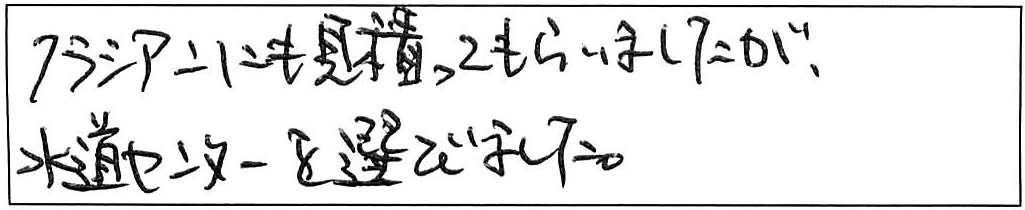 クラシアンにも見積ってもらいましたが、
水道センターを選びました。